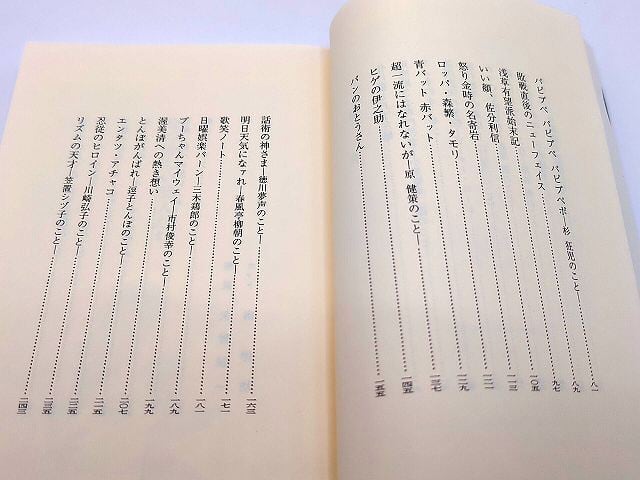 パピアペ パピアペ パピアペポ―杉 狂児のこと―……八一
敗戦直後のニューフェイス……八九
浅草有望派始末記……九七
いい顔、佐分利信……一〇五
怒り金時の名寄岩……一一三
ロッパ・森繁・タモリ……一二一
青バット 赤バット……一二九
超一流にはなれないが―原 健策のこと―……一三七
ヒゲの伊之助……一四五
パンのおとうさん……一五五
話術の神さま―徳川夢声のこと―……一六三
明日天気になァれ―春風亭柳朝のこと―……一七一
歌笑ノート……一八一
日曜娯楽版―三木鶏郎のこと―……一八九
ブーちゃんマイウェイ―市村俊幸のこと―……一九九
渥美清への熱き想い……二〇七
とんぼがんばれ―逗子とんぼのこと―……二一五
エンタツ・アチャコ……二二五
忍従のヒロイン―川崎弘子のこと―……二三五
リズムの天才―笠置シヅ子のこと―……二四三